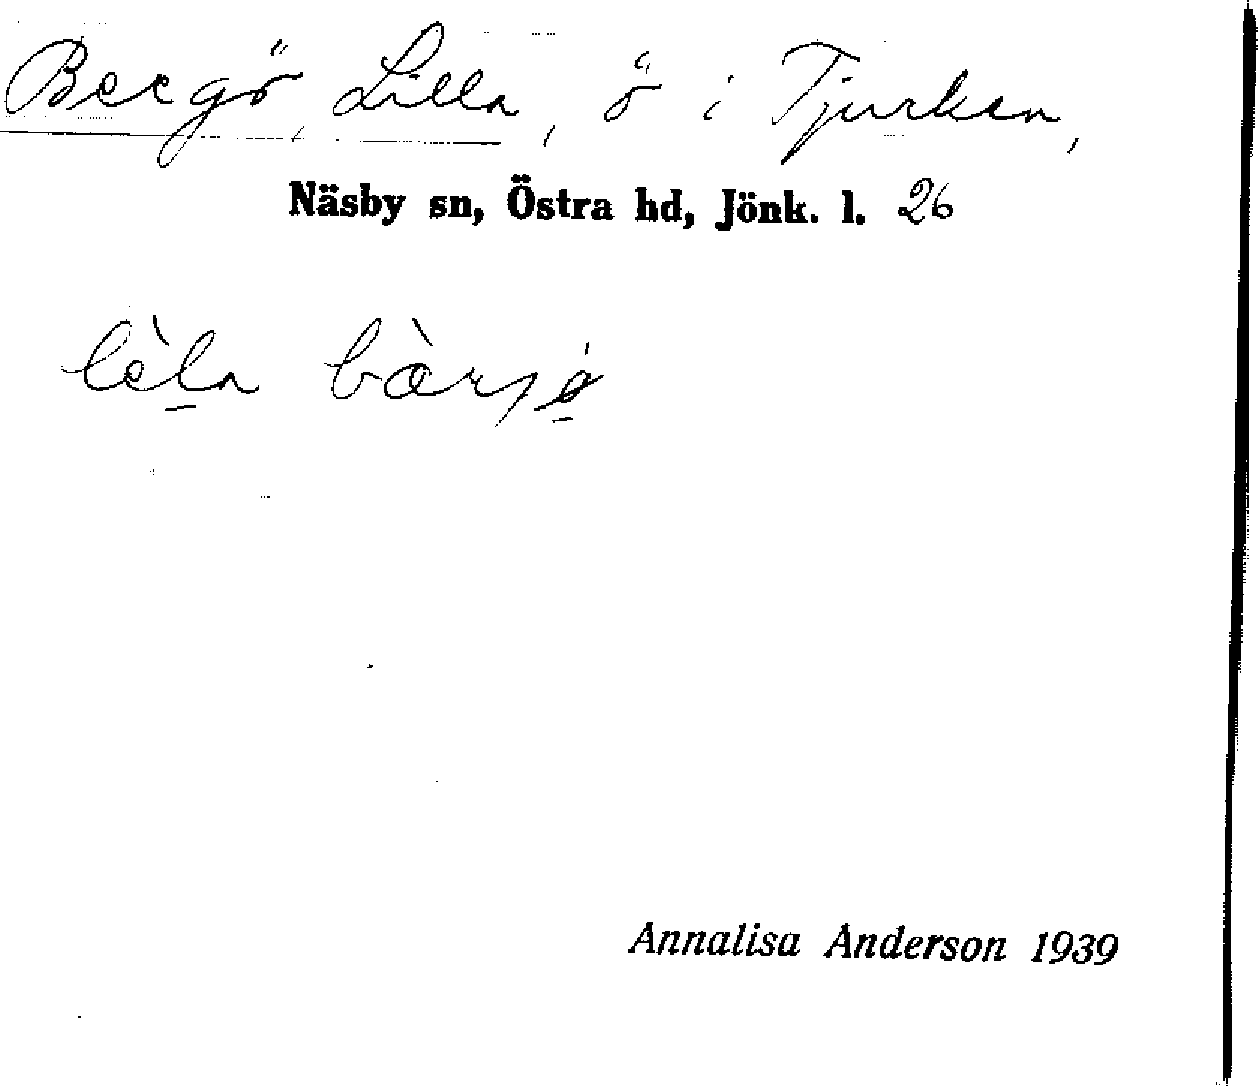 Bergö, Lilla, ö i Tjurken,
Näsby sn, Östra hd, Jönk. l. 26
lèla bàrjö́
Annalisa Anderson 1939